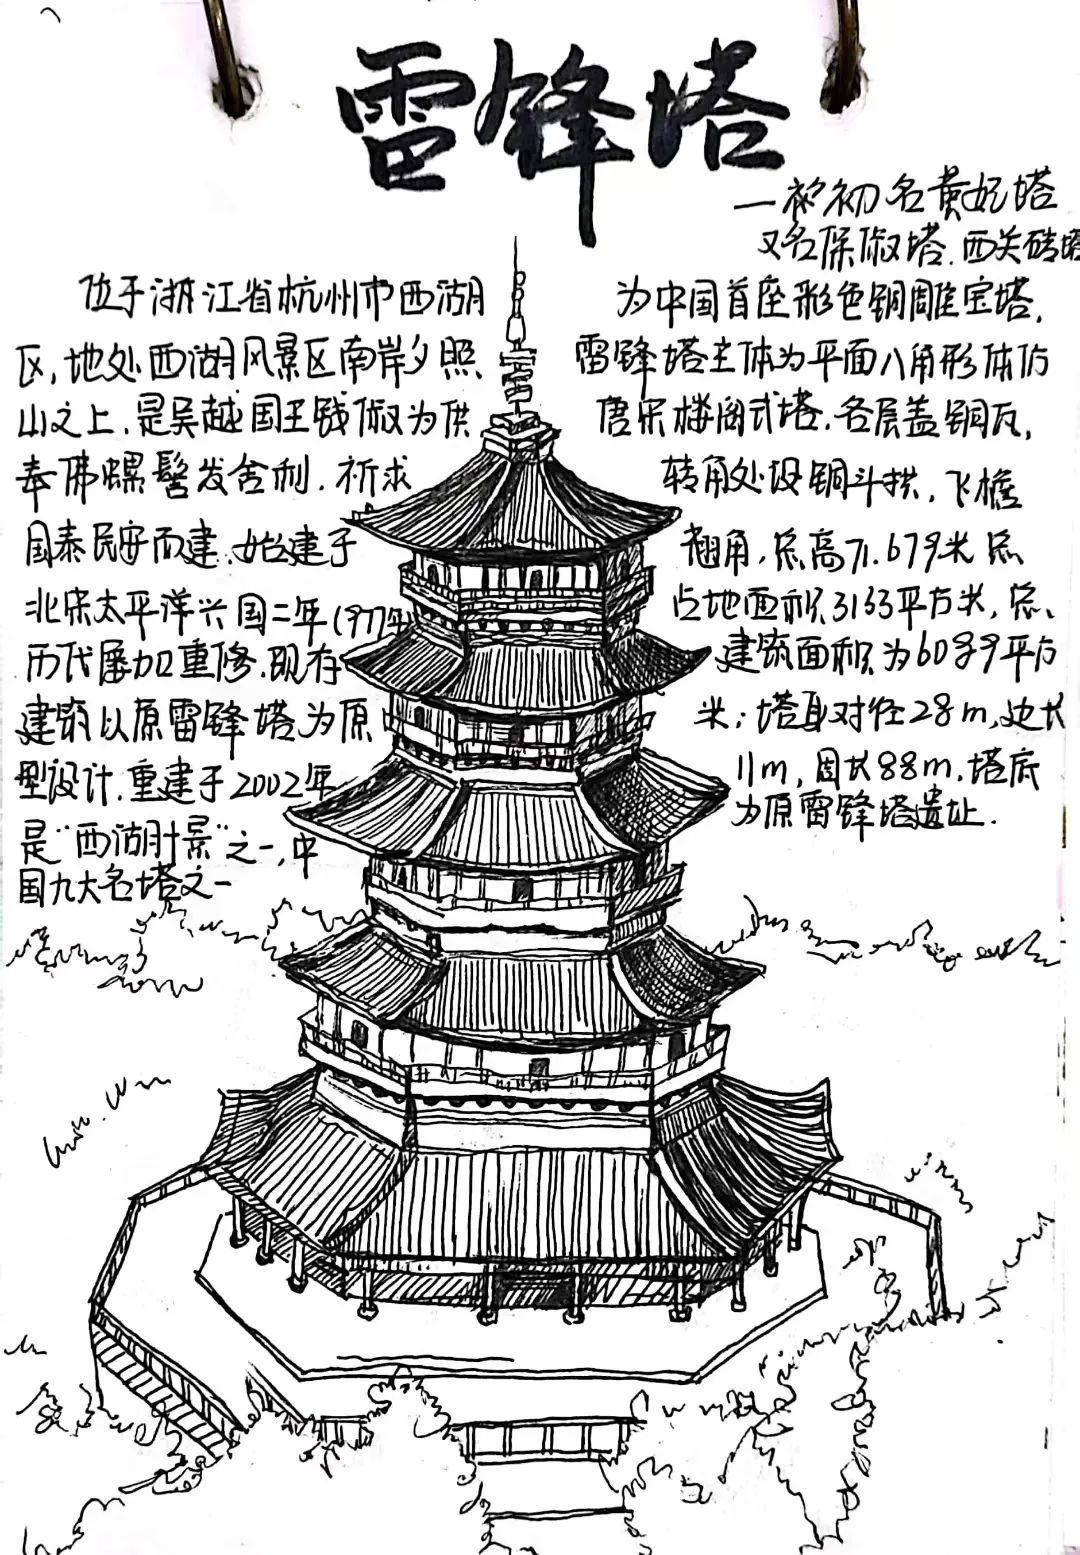 雷锋塔
一初名黄妃塔
又名保俶塔.西关砖塔
位于浙江省杭州市西湖
区,地处西湖风景区南岸夕照
山之上.是吴越国王钱俶为供
奉佛螺髻发舍利.祈求
国泰民安而建.始建于
北宋太平洋兴国二年(977年
历代屡加重修.现存
建筑以原雷锋塔为原
型设计.重建于2002年
是"西湖十景"之一,中
国九大名塔之一
为中国首座彩色铜雕宝塔,
雷锋塔主体为平面八角形体仿
唐宋楼阁式塔.各层盖铜瓦,
转角处设铜斗拱,飞檐
翘角,总高71.679米总
占地面积3133平方米,总、
建筑面积为6089平方
米;塔身对径28m,边长
11m,周长88m.塔底
为原雷锋塔遗址.